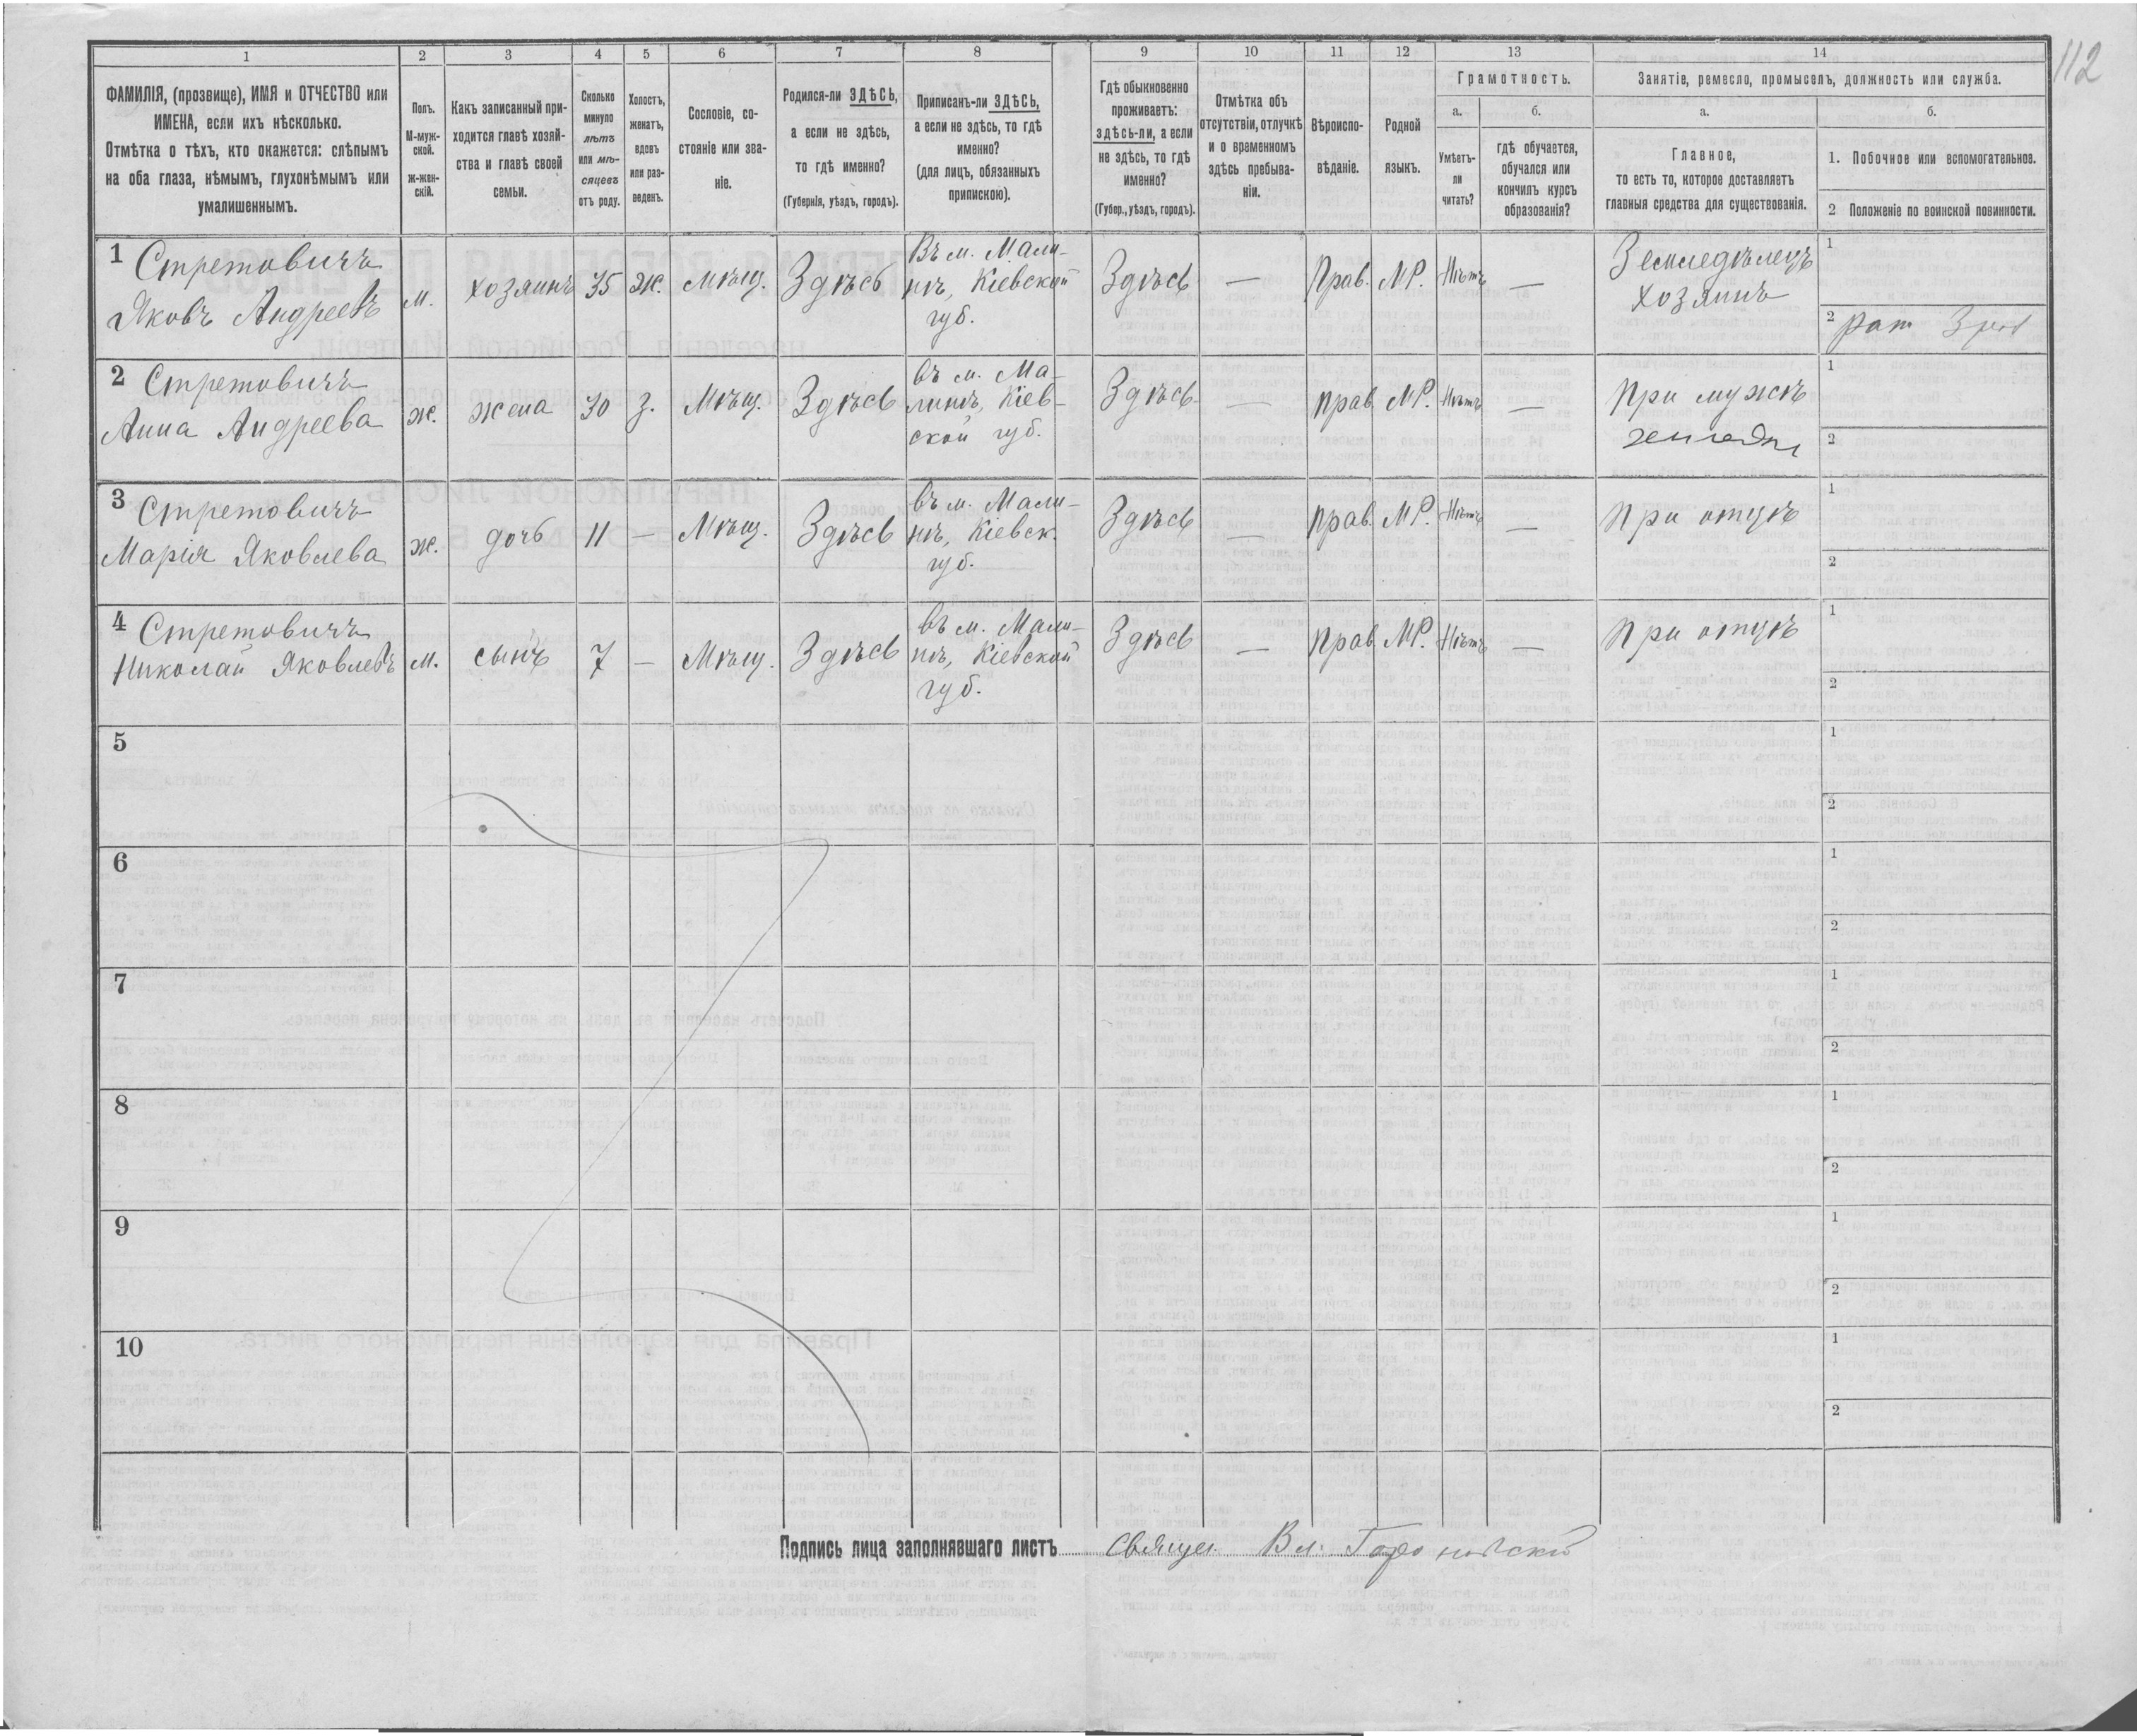 112
1 2 3 4 5 6 7 8 9 10 11 12 13 14
ФАМИЛІЯ, (прозвище), ИМЯ и ОТЧЕСТВО или
ИМЕНА, если ихъ нѣсколько.
Отмѣтка о тѣхъ, кто окажется: слѣпымъ
на оба глаза, нѣмымъ, глухонѣмымъ или
умалишеннымъ.
Полъ.
М-муж-
ской.
ж-жен-
скій.
Какъ записанный при-
ходится главѣ хозяй-
ства и главѣ своей
семьи.
Сколько
минуло
лѣтъ
или мѣ-
сяцевъ
отъ роду.
Холостъ,
женатъ,
вдовъ
или раз-
веденъ.
Сословіе, со-
стояніе или зва-
ніе.
Родился-ли ЗДѢСЬ,
а если не здѣсь,
то гдѣ именно?
(Губернія, уѣздъ, городъ).
Приписанъ-ли ЗДѢСЬ,
а если не здѣсь, то гдѣ
именно?
(для лицъ, обязанныхъ
припискою).
Гдѣ обыкновенно
проживаетъ:
здѣсь-ли, а если
не здѣсь, то гдѣ
именно?
(Губер., уѣздъ, городъ).
Отмѣтка объ
отсутствіи, отлучкѣ
и о временномъ
здѣсь пребыва-
ніи.
Вѣроиспо-
вѣданіе.
Родной
языкъ.
Грамотность.
а.
Умѣетъ-
ли
читать?
б.
гдѣ обучается,
обучался или
кончилъ курсъ
образованія?
Занятіе, ремесло, промыселъ, должность или служба.
а.
Главное,
то есть то, которое доставляетъ
главныя средства для существованія.
б.
1. Побочное или вспомогательное.
2 Положеніе по воинской повинности.
1 Стретовичъ
Яковъ Андреевъ
м.
хозяинъ
35
ж.
мѣщ.
Здѣсь
Въ м. Мали-
нѣ, Кіевской
губ.
Здѣсь
—
Прав.
МР.
Нѣтъ
—
Земледѣлецъ
хозяинъ
1
2 рат
2 Стретовичъ
Анна Андреева
ж.
жена
30
з.
Мѣщ.
Здѣсь
въ м. Ма-
линѣ, Кіев-
ской губ.
Здѣсь
—
Прав.
МР.
Нѣтъ
—
При мужѣ
1
2
3 Стретовичъ
Марія Яковлева
ж.
дочь
11
—
Мѣщ.
Здѣсь
въ м. Мали-
нѣ, Кіевск.
губ.
Здѣсь
—
Прав.
МР.
Нѣтъ
—
При отцѣ
1
2
4 Стретовичъ
Николай Яковлевъ
м.
сынъ
7
—
Мѣщ.
Здѣсь
въ м. Мали-
нѣ, Кіевской
губ.
Здѣсь
—
Прав.
МР.
Нѣтъ
—
При отцѣ
1
2
5
1
2
6
1
2
7
1
2
8
1
2
9
1
2
10
1
2
Подпись лица заполнявшаго листъ Священ. Вл.